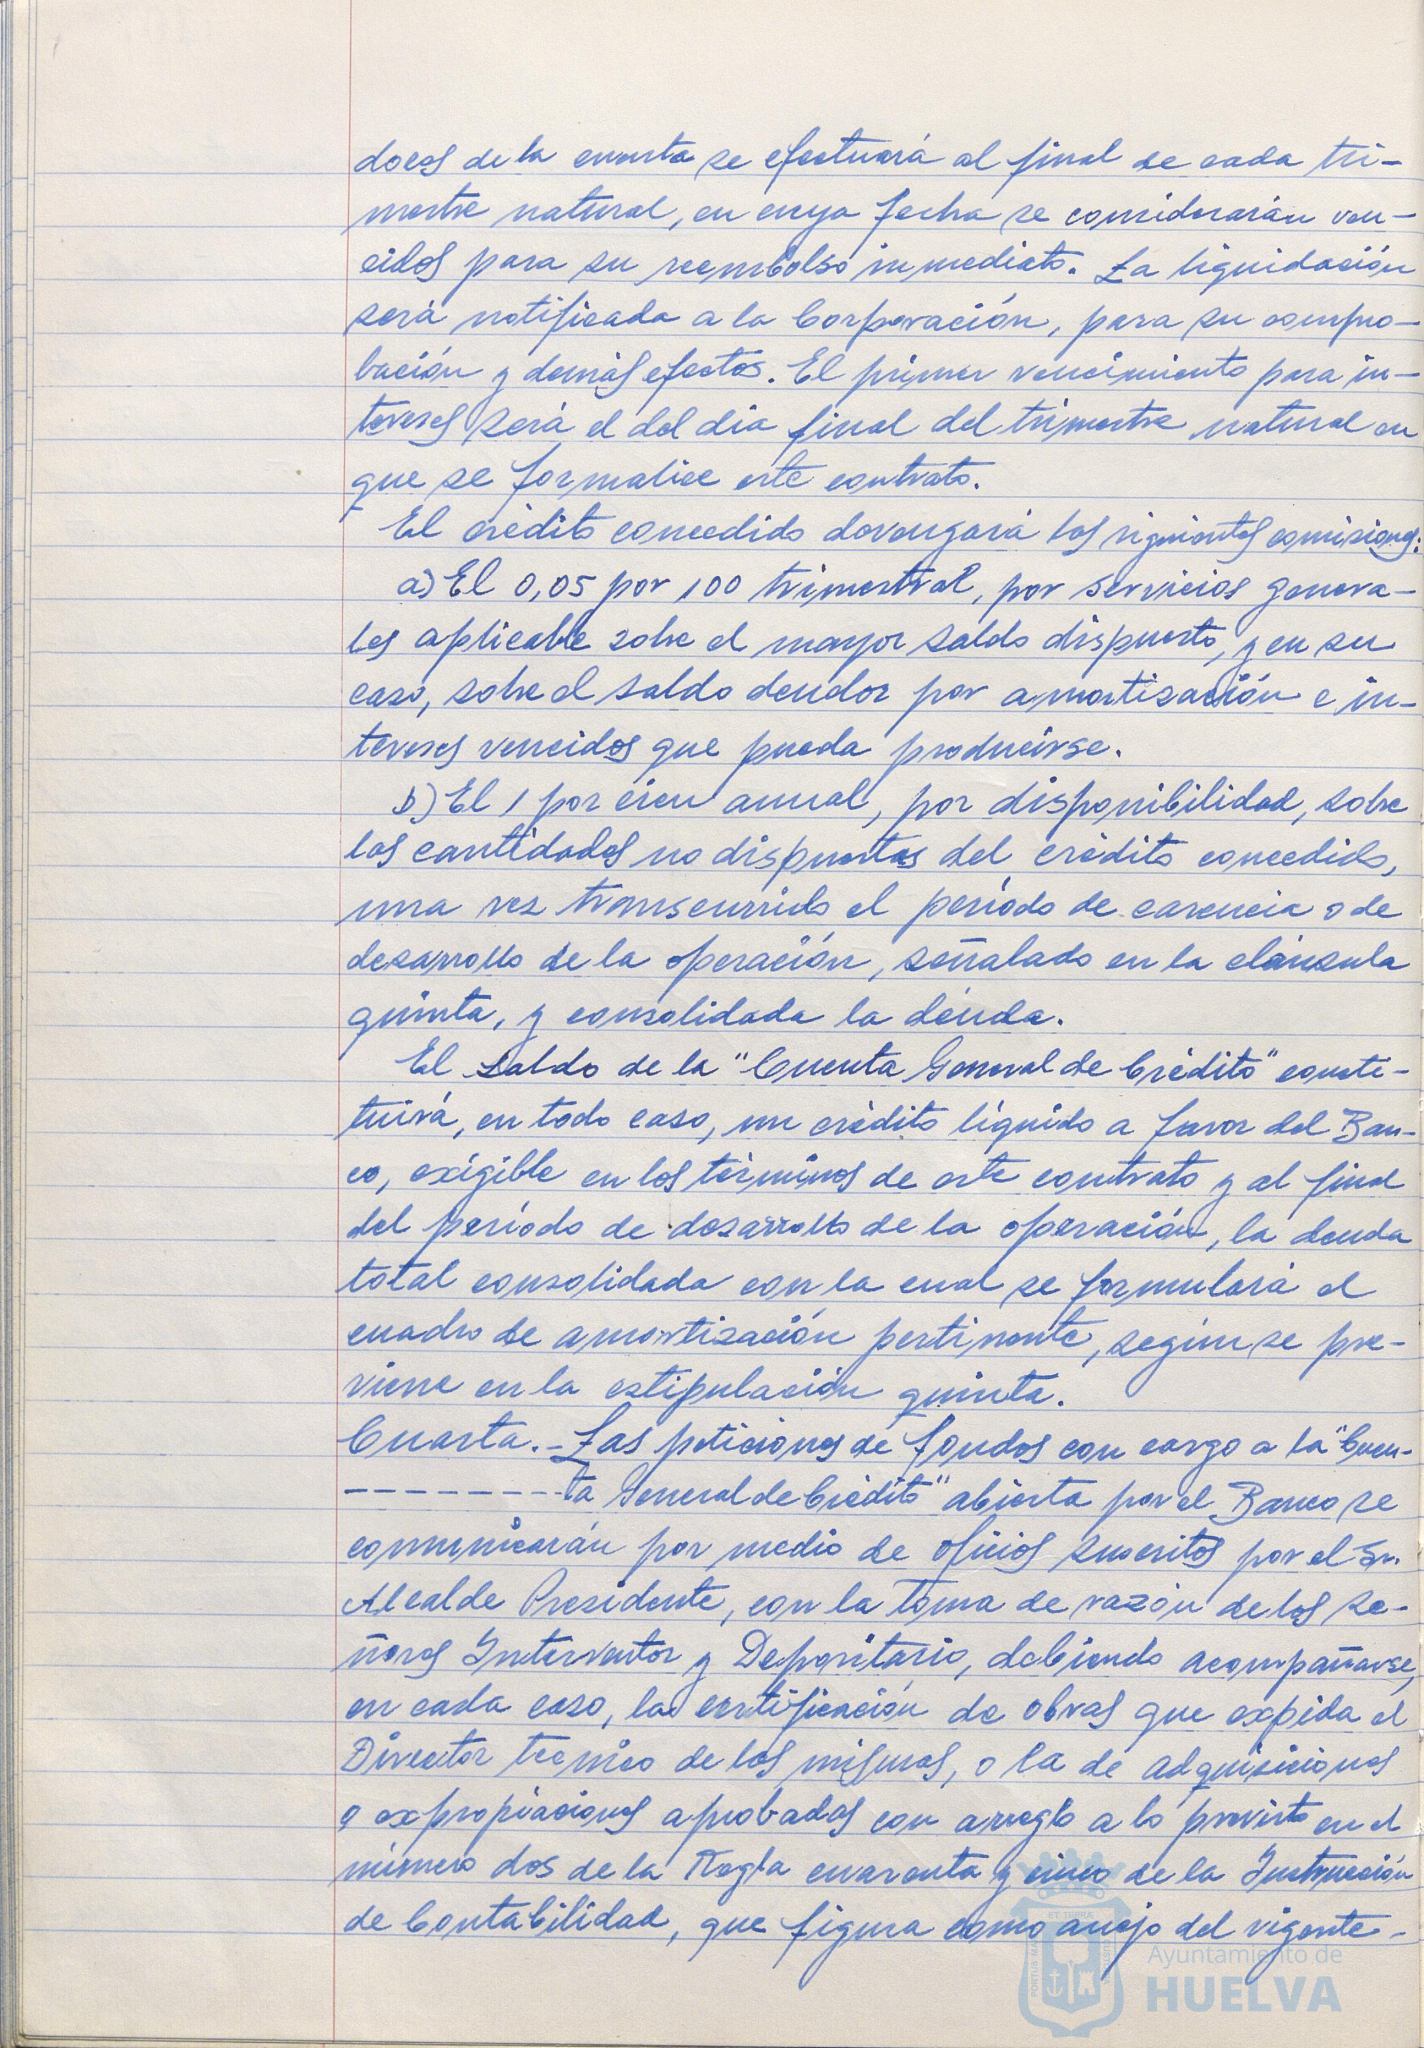 dores de la cuenta se efectuará al final de cada tri-
mestre natural, en cuya fecha se considerarán ven-
cidos para su reembolso inmediato. La liquidación
será notificada a la Corporación, para su compro-
bación y demás efectos. El primer vencimiento para in-
tereses será el del día final del trimestre natural en
que se formalice este contrato.
El crédito concedido devengará las siguientes comisiones:
a) El 0,05 por 100 trimestral, por servicios genera-
les aplicable sobre el mayor saldo dispuesto, y en su
caso, sobre el saldo deudor por amortización e in-
tereses vencidos que pueda producirse.
b) El 1 por cien anual, por disponibilidad, sobre
las cantidades no dispuestas del crédito concedido,
una vez transcurrido el período de carencia o de
desarrollo de la operación, señalado en la cláusula
quinta, y consolidada la deuda.
El saldo de la "Cuenta General de Crédito" consti-
tuirá, en todo caso, un crédito líquido a favor del Ban-
co, exigible en los términos de este contrato y al final
del período de desarrollo de la operación, la deuda
total consolidada con la cual se formulará el
cuadro de amortización pertinente, según se pre-
viene en la estipulación quinta.
Cuarta.- Las peticiones de fondos con cargo a la "Cuen-
--------ta General de Crédito" abierta por el Banco se
comunicarán por medio de oficios suscritos por el Sr.
Alcalde Presidente, con la toma de razón de los se-
ñores Interventor y Depositario, debiendo acompañarse,
en cada caso, la certificación de obras que expida el
Director técnico de las mismas, o la de adquisiciones
o expropiaciones aprobadas con arreglo a lo previsto en el
número dos de la Regla cuarenta y cinco de la Instrucción
de Contabilidad, que figura como anejo del vigente-
Ayuntamiento de
HUELVA